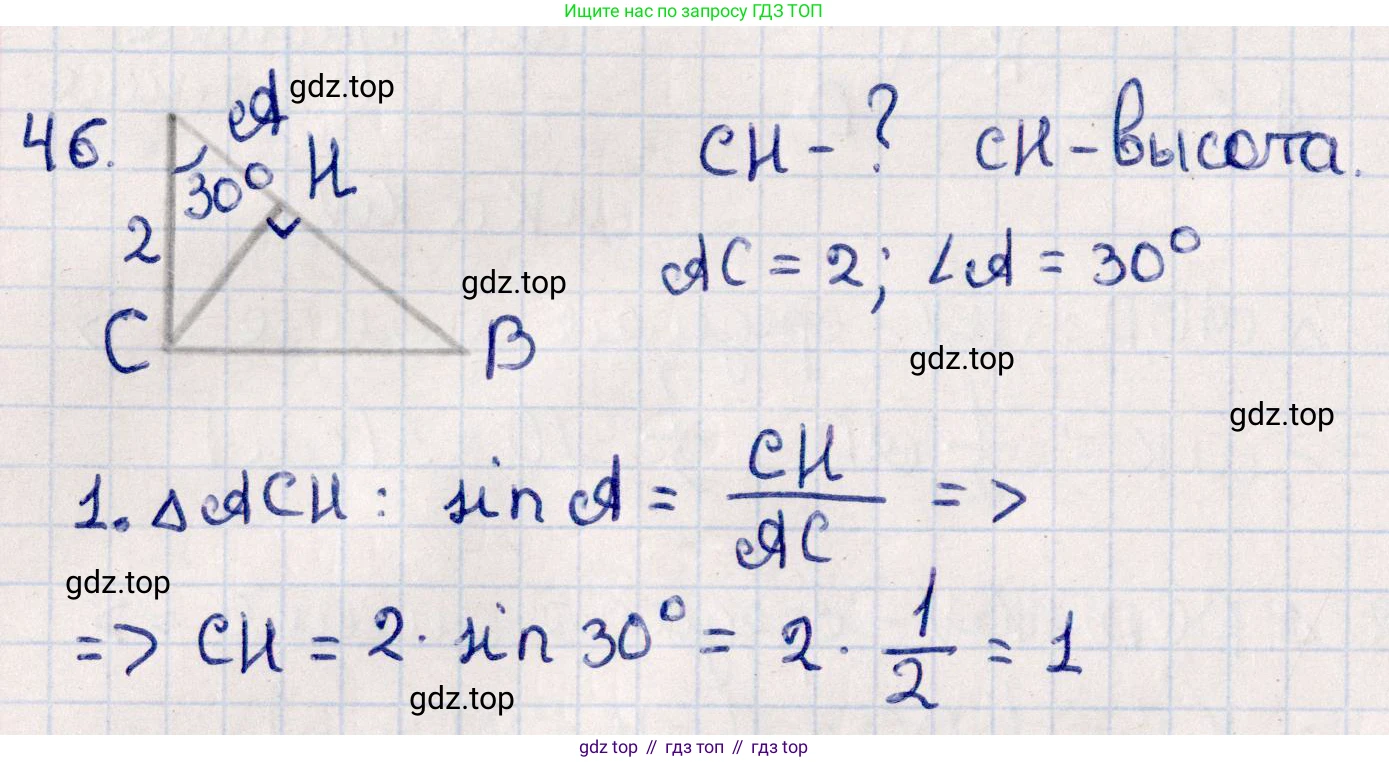 Ищите нас по запросу ГДЗ ТОП
46.
A
gdz.top
30° H
2
C
B
gdz.top
CH - ? CH - высота.
AC = 2; ∠A = 30°
gdz.top
gdz.top
1. △ACH: sin A = CH/AC =>
gdz.top
=> CH = 2 · sin 30° = 2 · 1/2 = 1
gdz.top
gdz top // гдз топ // гдз top